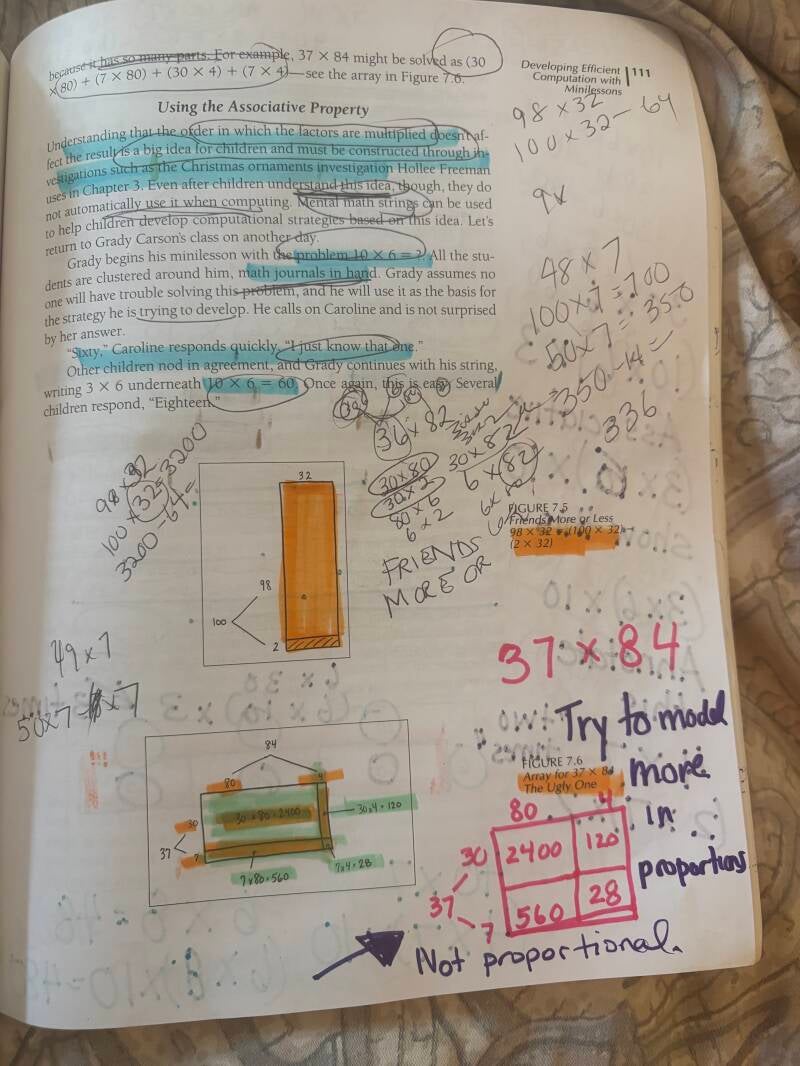 because it has so many parts. For example, 37 × 84 might be solved as (30
× 80) + (7 × 80) + (30 × 4) + (7 × 4)—see the array in Figure 7.6.
Developing Efficient
Computation with
Minilessons
111
Using the Associative Property
Understanding that the order in which the factors are multiplied doesn't af-
fect the result is a big idea for children and must be constructed through in-
vestigations such as the Christmas ornaments investigation Hollee Freeman
uses in Chapter 3. Even after children understand this idea, though, they do
not automatically use it when computing. Mental math strings can be used
to help children develop computational strategies based on this idea. Let's
return to Grady Carson's class on another day.
Grady begins his minilesson with the problem 10 × 6 = ? All the stu-
dents are clustered around him, math journals in hand. Grady assumes no
one will have trouble solving this problem, and he will use it as the basis for
the strategy he is trying to develop. He calls on Caroline and is not surprised
by her answer.
"Sixty," Caroline responds quickly, "I just know that one."
Other children nod in agreement, and Grady continues with his string,
writing 3 × 6 underneath 10 × 6 = 60. Once again, this is easy. Several
children respond, "Eighteen."
98 × 32
100 × 32 - 64
9×
48 × 7
100 × 7 = 700
50 × 7 = 350
350 - 14 =
336
36 × 82
30 × 80
30 × 2
80 × 6
6 × 2
30 × 82
6 × 82
FRIENDS
MORE OR
98 × 32
100 × 32 = 3200
3200 - 64 =
32
98
100
2
FIGURE 7.5
Friends More or Less
98 × 32 = (100 × 32) –
(2 × 32)
49 × 7
50 × 7 - × 7
37 × 84
Try to model
more
in
proportions
84
80
4
30
37
7
30 × 80 = 2400
30 × 4 = 120
7 × 80 = 560
7 × 4 = 28
FIGURE 7.6
Array for 37 × 84
The Ugly One
80 4
30 2400 120
37
7 560 28
Not proportional.